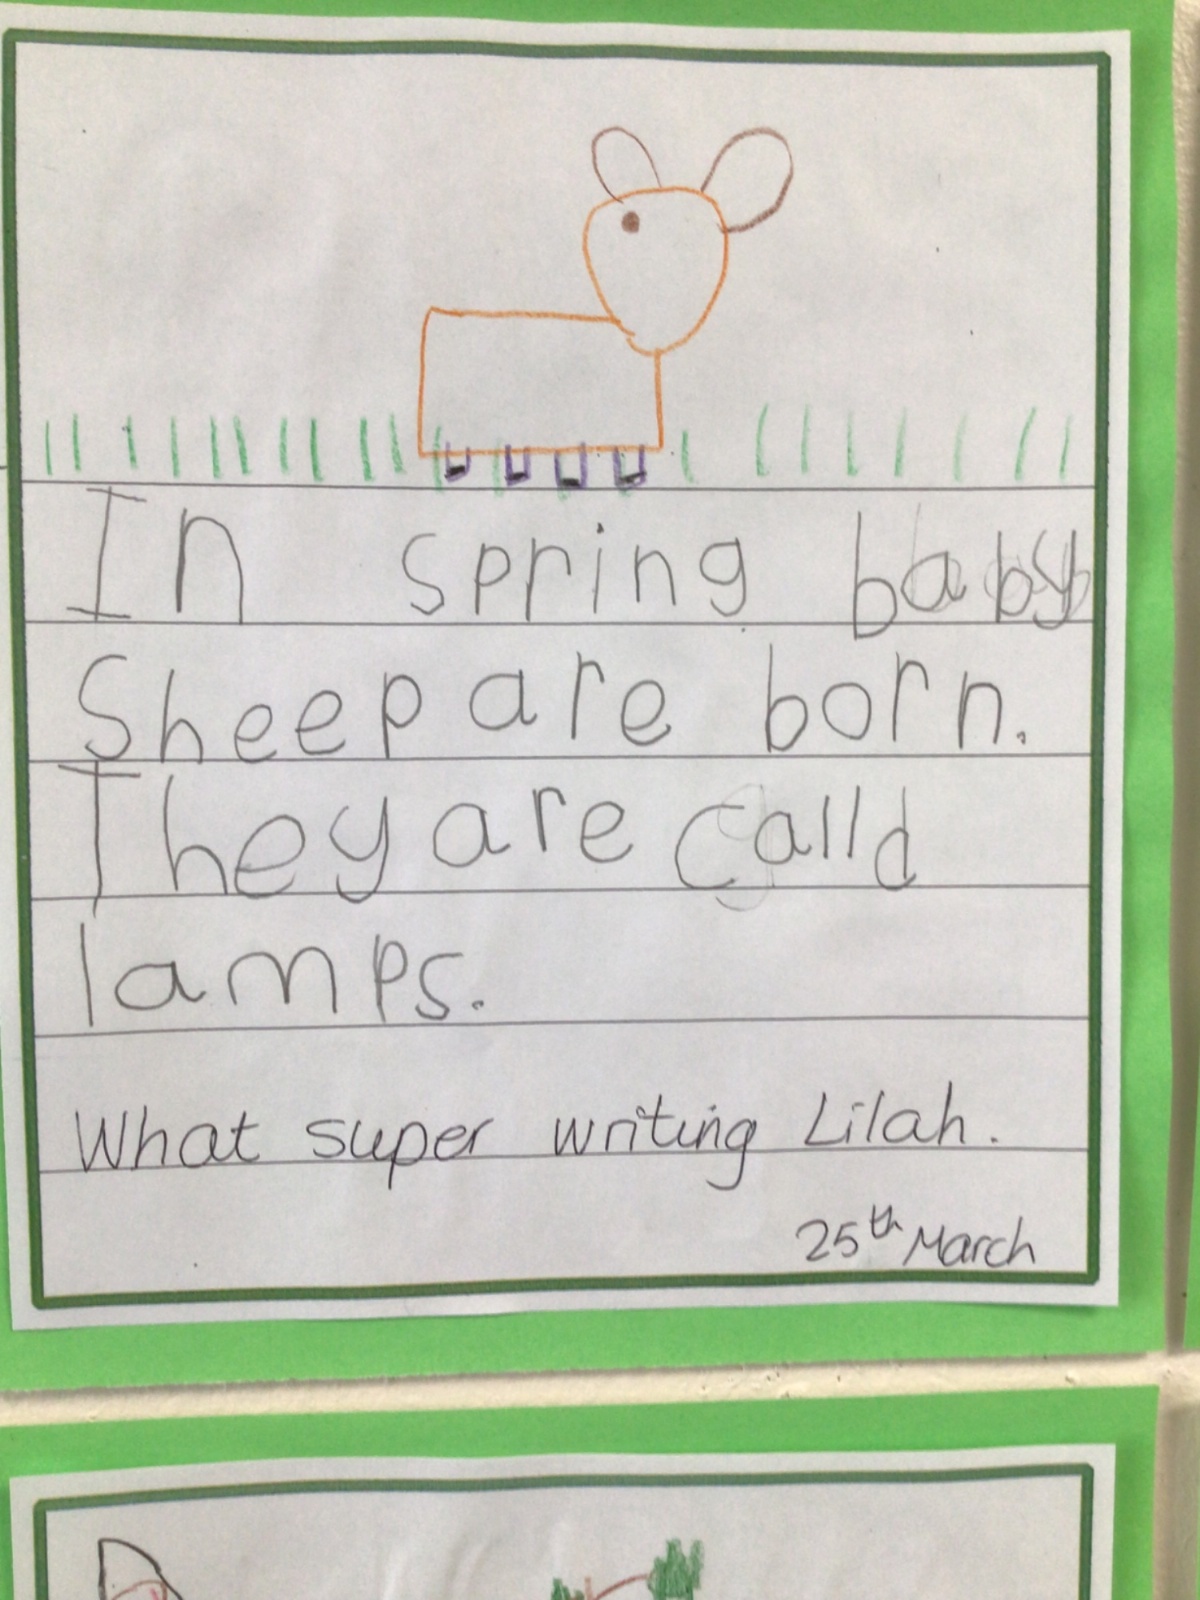 In spring baby
Sheep are born.
They are calld
lamps.
What super writing Lilah.
25th March